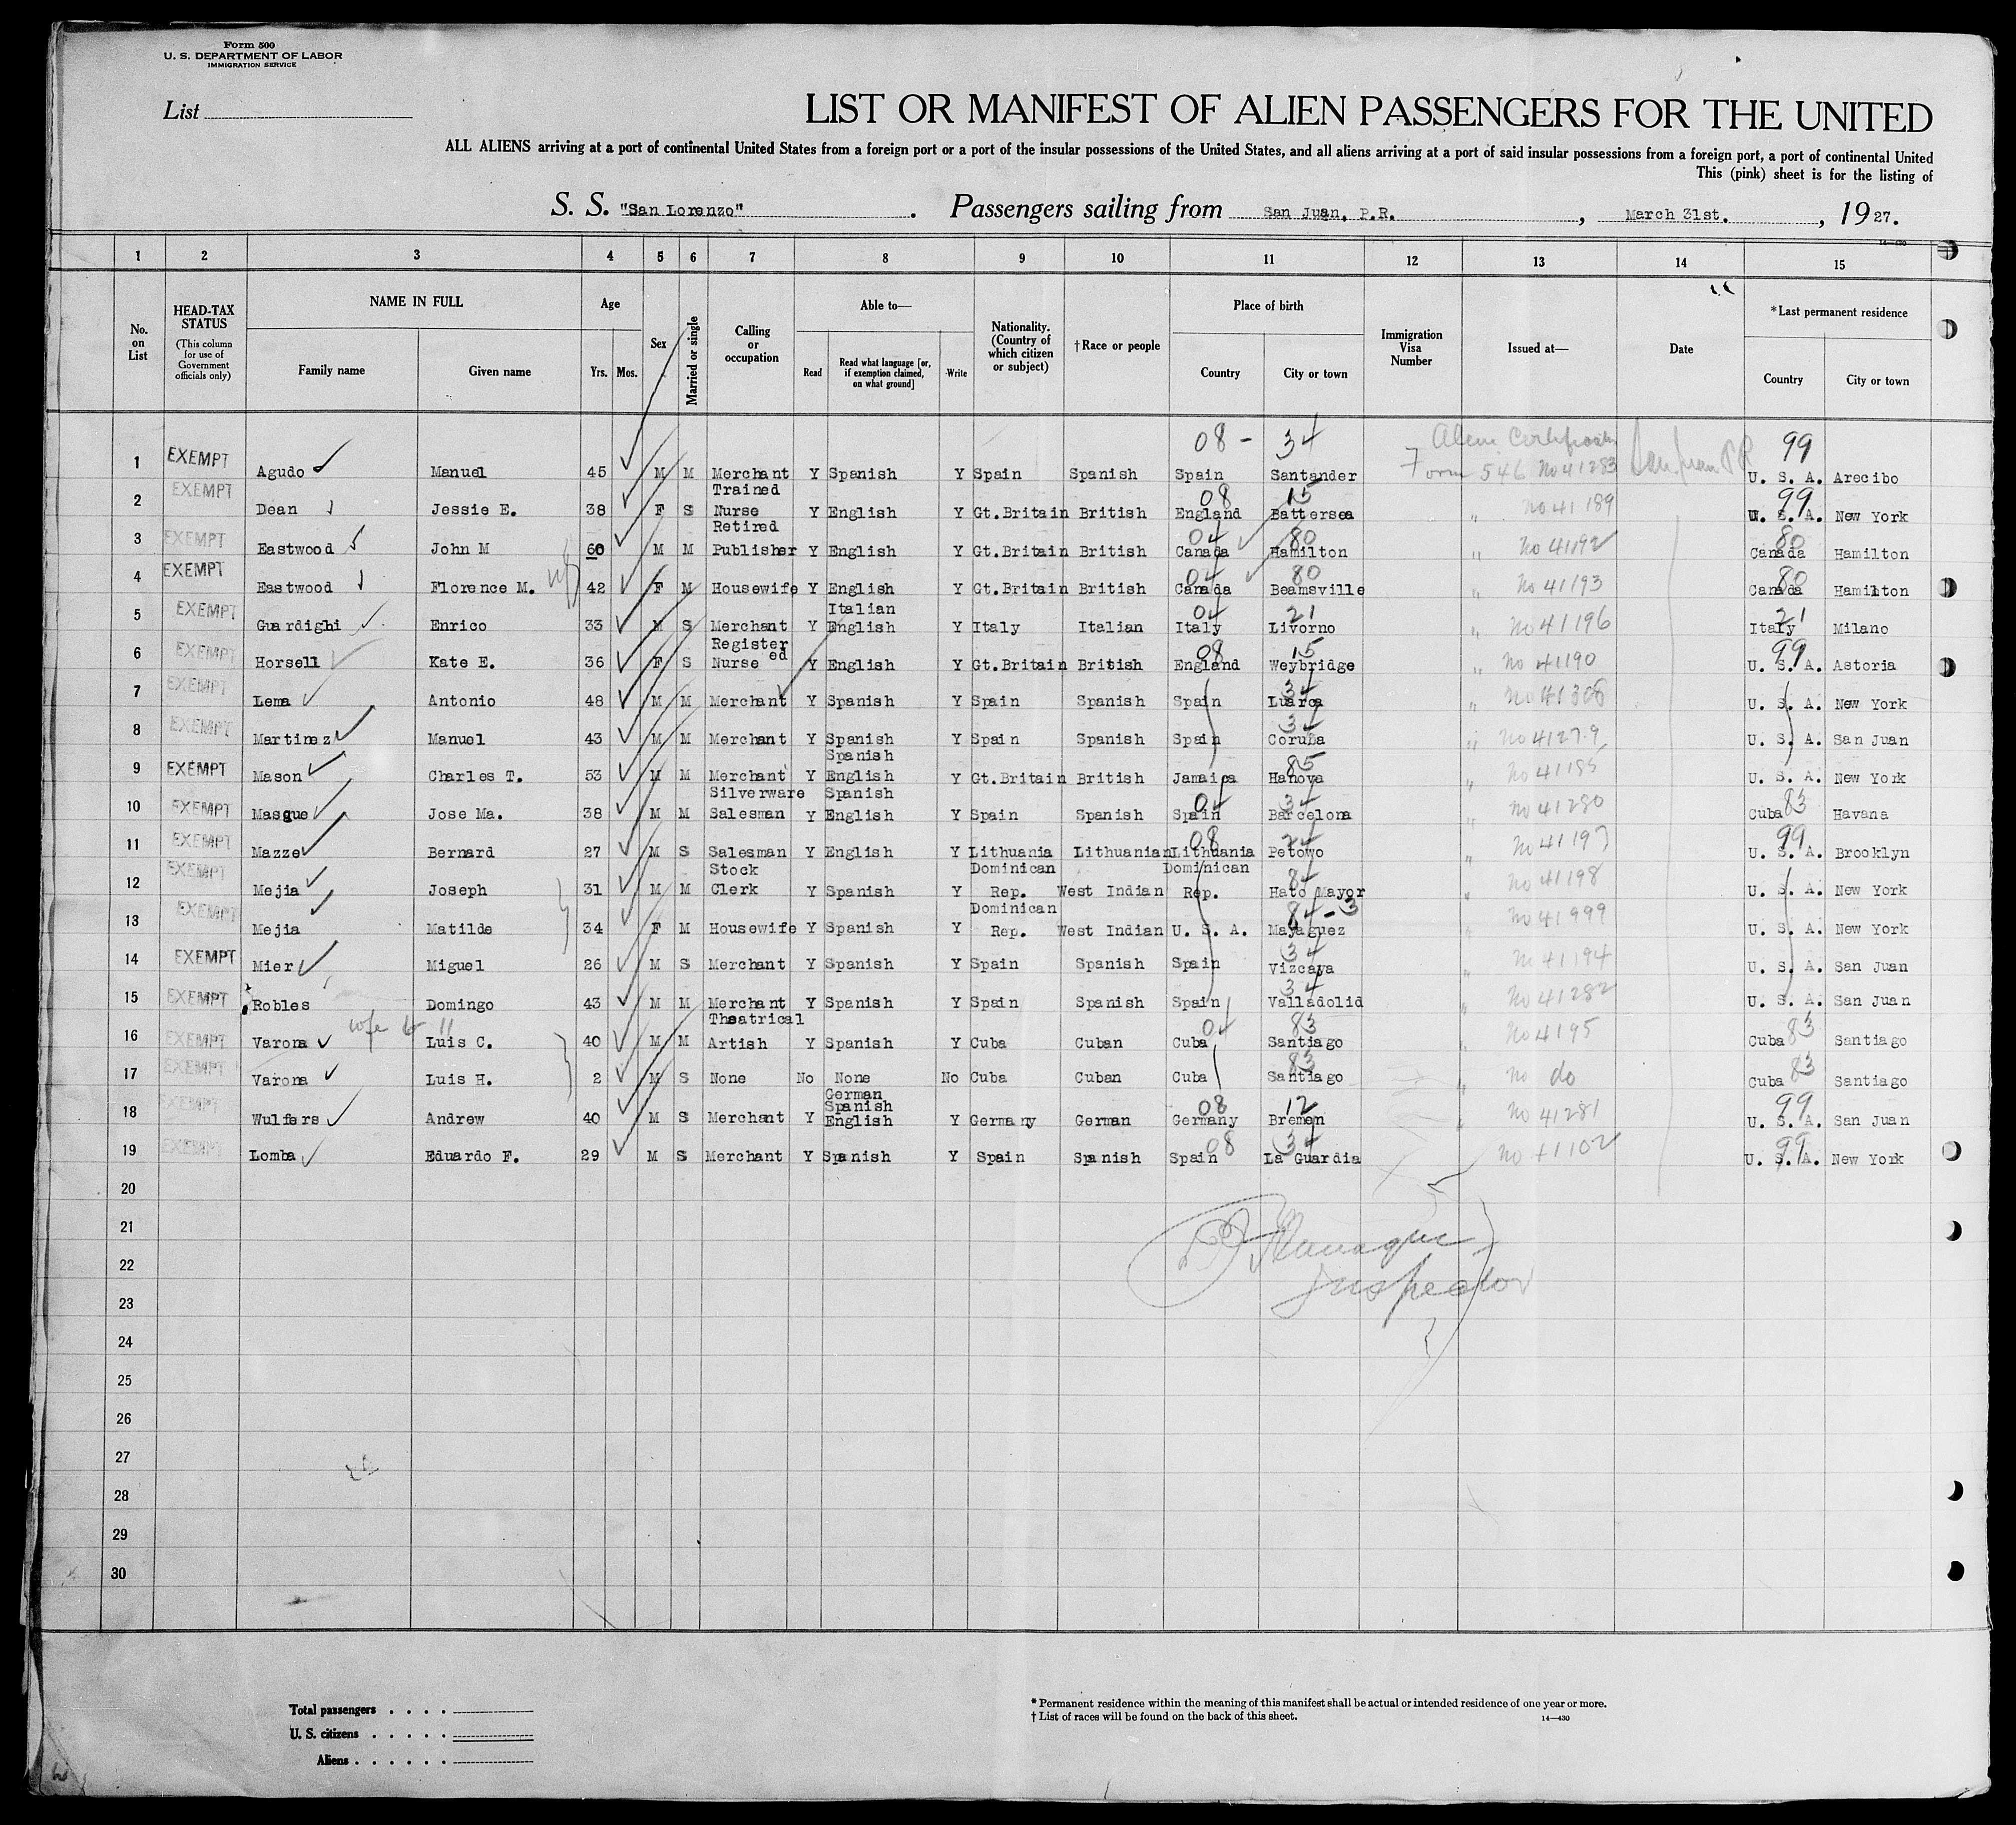 Form 500
U. S. DEPARTMENT OF LABOR
IMMIGRATION SERVICE
List
LIST OR MANIFEST OF ALIEN PASSENGERS FOR THE UNITED
ALL ALIENS arriving at a port of continental United States from a foreign port or a port of the insular possessions of the United States, and all aliens arriving at a port of said insular possessions from a foreign port, a port of continental United
This (pink) sheet is for the listing of
S. S. "San Lorenzo" . Passengers sailing from San Juan, P.R. , March 31st. , 1927.
14—430
1 2 3 4 5 6 7 8 9 10 11 12 13 14 15
No. on List
HEAD-TAX STATUS
(This column for use of Government officials only)
NAME IN FULL
Family name Given name
Age
Yrs. Mos.
Sex
Married or single
Calling or occupation
Able to—
Read Read what language [or, if exemption claimed, on what ground] Write
Nationality. (Country of which citizen or subject)
†Race or people
Place of birth
Country City or town
Immigration Visa Number
Issued at—
Date
*Last permanent residence
Country City or town
08 - 34 Alien Certificate 99
1 EXEMPT Agudo Manuel 45 M M Merchant Y Spanish Y Spain Spanish Spain Santander Form 546 No 41283 San Juan PR U. S. A. Arecibo
2 EXEMPT Dean Jessie E. 38 F S Trained Nurse Y English Y Gt.Britain British 08 England 15 Battersea " No 41189 99 U. S. A. New York
3 EXEMPT Eastwood John M 60 M M Retired Publisher Y English Y Gt.Britain British 04 Canada 80 Hamilton " No 41192 80 Canada Hamilton
4 EXEMPT Eastwood Florence M. wf 42 F M Housewife Y English Y Gt.Britain British 04 Canada 80 Beamsville " No 41193 80 Canada Hamilton
5 EXEMPT Guardighi Enrico 33 M S Merchant Y Italian English Y Italy Italian 04 Italy 21 Livorno " No 41196 21 Italy Milano
6 EXEMPT Horsell Kate E. 36 F S Registered Nurse Y English Y Gt.Britain British 08 England 15 Weybridge " No 41190 99 U. S. A. Astoria
7 EXEMPT Lema Antonio 48 M M Merchant Y Spanish Y Spain Spanish Spain 34 Luarca " No 41308 U. S. A. New York
8 EXEMPT Martinez Manuel 43 M M Merchant Y Spanish Y Spain Spanish Spain 34 Coruña " No 41279 U. S. A. San Juan
9 EXEMPT Mason Charles T. 53 M M Merchant Y Spanish English Y Gt.Britain British Jamaica 85 Hanova " U. S. A. New York
10 EXEMPT Masque Jose Ma. 38 M M Silverware Salesman Y Spanish English Y Spain Spanish 04 Spain 34 Barcelona " No 41280 Cuba 83 Havana
11 EXEMPT Mazze Bernard 27 M S Salesman Y English Y Lithuania Lithuanian 08 Lithuania 24 Petowo " No 41197 99 U. S. A. Brooklyn
12 EXEMPT Mejia Joseph 31 M M Stock Clerk Y Spanish Y Dominican Rep. West Indian Dominican Rep. 84 Hato Mayor " No 41198 U. S. A. New York
13 EXEMPT Mejia Matilde 34 F M Housewife Y Spanish Y Dominican Rep. West Indian U. S. A. 84-3 Mayaguez " No 41999 U. S. A. New York
14 EXEMPT Mier Miguel 26 M S Merchant Y Spanish Y Spain Spanish Spain 34 Vizcaya " No 41194 U. S. A. San Juan
15 EXEMPT Robles Domingo 43 M M Merchant Y Spanish Y Spain Spanish Spain 34 Valladolid " No 41282 U. S. A. San Juan
wife to 11
16 EXEMPT Varona Luis C. 40 M M Theatrical Artish Y Spanish Y Cuba Cuban 04 Cuba 83 Santiago " No 4195 Cuba 83 Santiago
17 EXEMPT Varona Luis H. 2 M S None No None No Cuba Cuban Cuba 83 Santiago " No do Cuba 83 Santiago
18 EXEMPT Wulfers Andrew 40 M S Merchant Y German Spanish English Y Germany German 08 Germany 12 Bremen " No 41281 99 U. S. A. San Juan
19 EXEMPT Lomba Eduardo F. 29 M S Merchant Y Spanish Y Spain Spanish Spain 08 34 La Guardia No 41102 99 U. S. A. New York
20
21
22
Inspector
23
24
25
26
27
28
29
30
Total passengers . . . .
U. S. citizens . . . . .
Aliens . . . . . .
* Permanent residence within the meaning of this manifest shall be actual or intended residence of one year or more.
† List of races will be found on the back of this sheet.
14—430